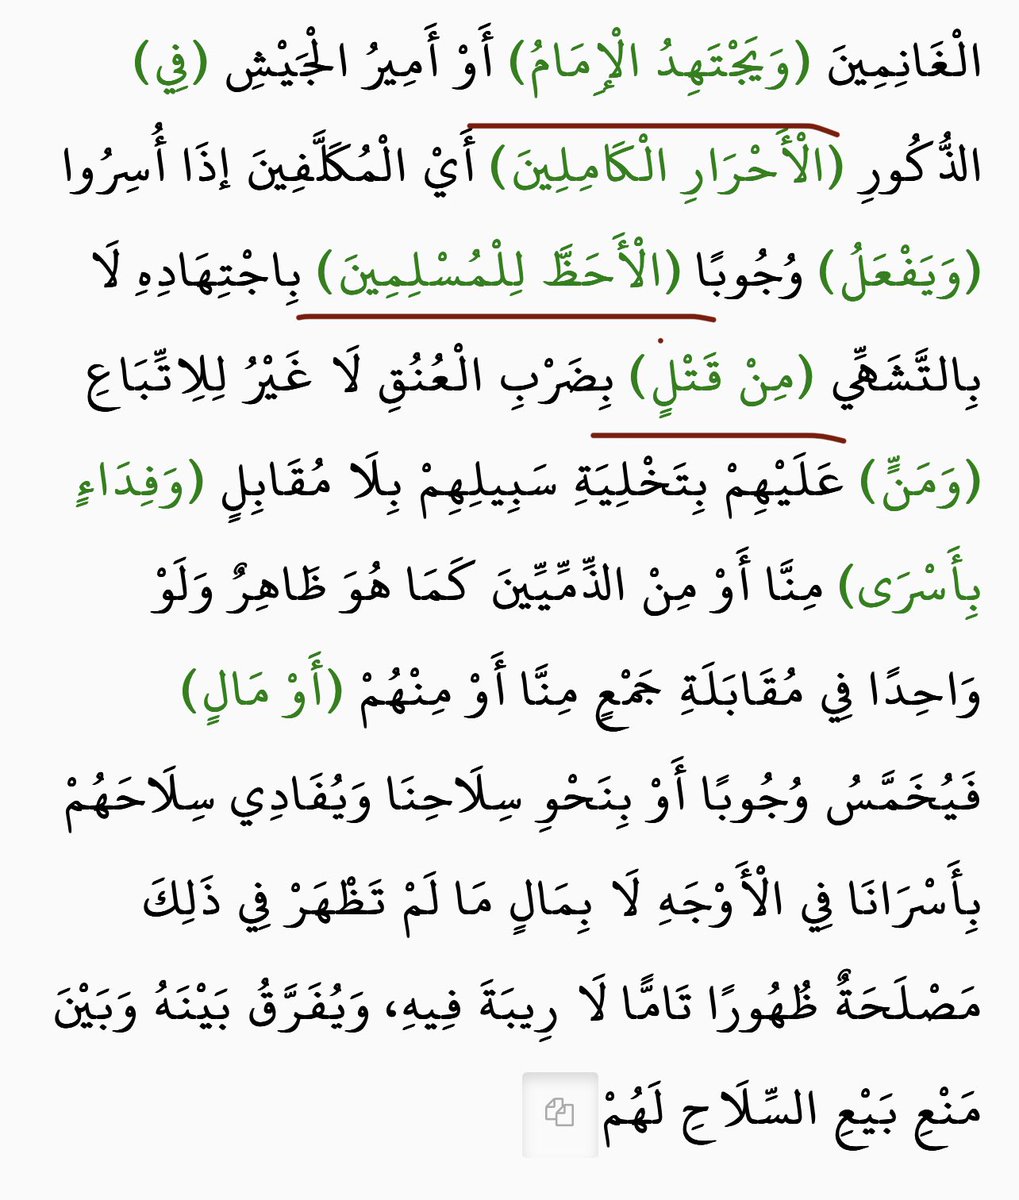 الْغَانِمِينَ (وَيَجْتَهِدُ الْإِمَامُ) أَوْ أَمِيرُ الْجَيْشِ (فِي)
الذُّكُورِ (الْأَحْرَارِ الْكَامِلِينَ) أَيْ الْمُكَلَّفِينَ إذَا أُسِرُوا
(وَيَفْعَلُ) وُجُوبًا (الْأَحَظَّ لِلْمُسْلِمِينَ) بِاجْتِهَادِهِ لَا
بِالتَّشَهِّي (مِنْ قَتْلٍ) بِضَرْبِ الْعُنُقِ لَا غَيْرُ لِلِاتِّبَاعِ
(وَمَنٍّ) عَلَيْهِمْ بِتَخْلِيَةِ سَبِيلِهِمْ بِلَا مُقَابِلٍ (وَفِدَاءٍ
بِأَسْرَى) مِنَّا أَوْ مِنْ الذِّمِّيِّينَ كَمَا هُوَ ظَاهِرٌ وَلَوْ
وَاحِدًا فِي مُقَابَلَةِ جَمْعٍ مِنَّا أَوْ مِنْهُمْ (أَوْ مَالٍ)
فَيُخَمَّسُ وُجُوبًا أَوْ بِنَحْوِ سِلَاحِنَا وَيُفَادِي سِلَاحَهُمْ
بِأَسْرَانَا فِي الْأَوْجَهِ لَا بِمَالٍ مَا لَمْ تَظْهَرْ فِي ذَلِكَ
مَصْلَحَةٌ ظُهُورًا تَامًّا لَا رِيبَةَ فِيهِ، وَيُفَرَّقُ بَيْنَهُ وَبَيْنَ
مَنْعِ بَيْعِ السِّلَاحِ لَهُمْ